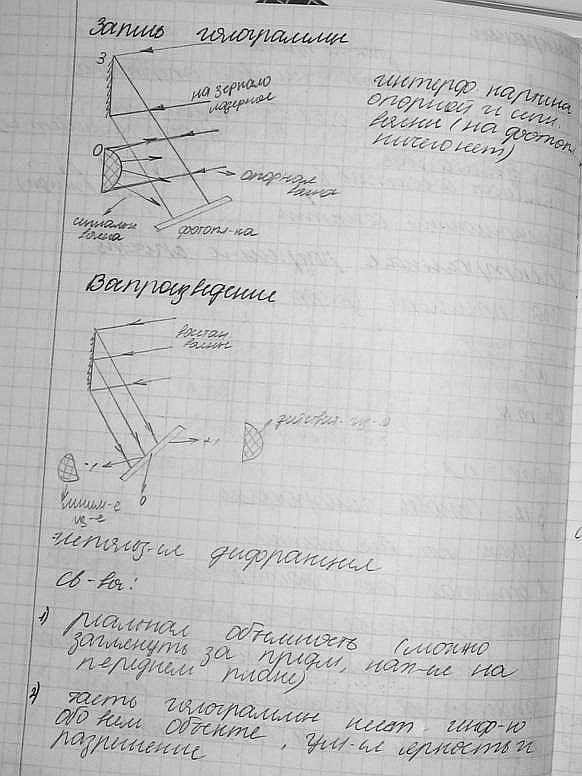 Запись голограммы
З
на зеркало
лазерное
интерф. картина
опорной и сигн.
волны (на фотопл
ничего нет)
О
опорная
волна
сигнальн
волна
фотопл-ка
Вапроизведение
восстан
волны
действ. из-е
+1
-1
0
мним-е
из-е
использ-ся дифракция
св-ва:
1) реальная объемность (можно
заглянуть за предм, нах-ые на
переднем плане)
2) часть голограммы несет инф-ю
обо всем объекте, ум-ся яркость и
разрешение